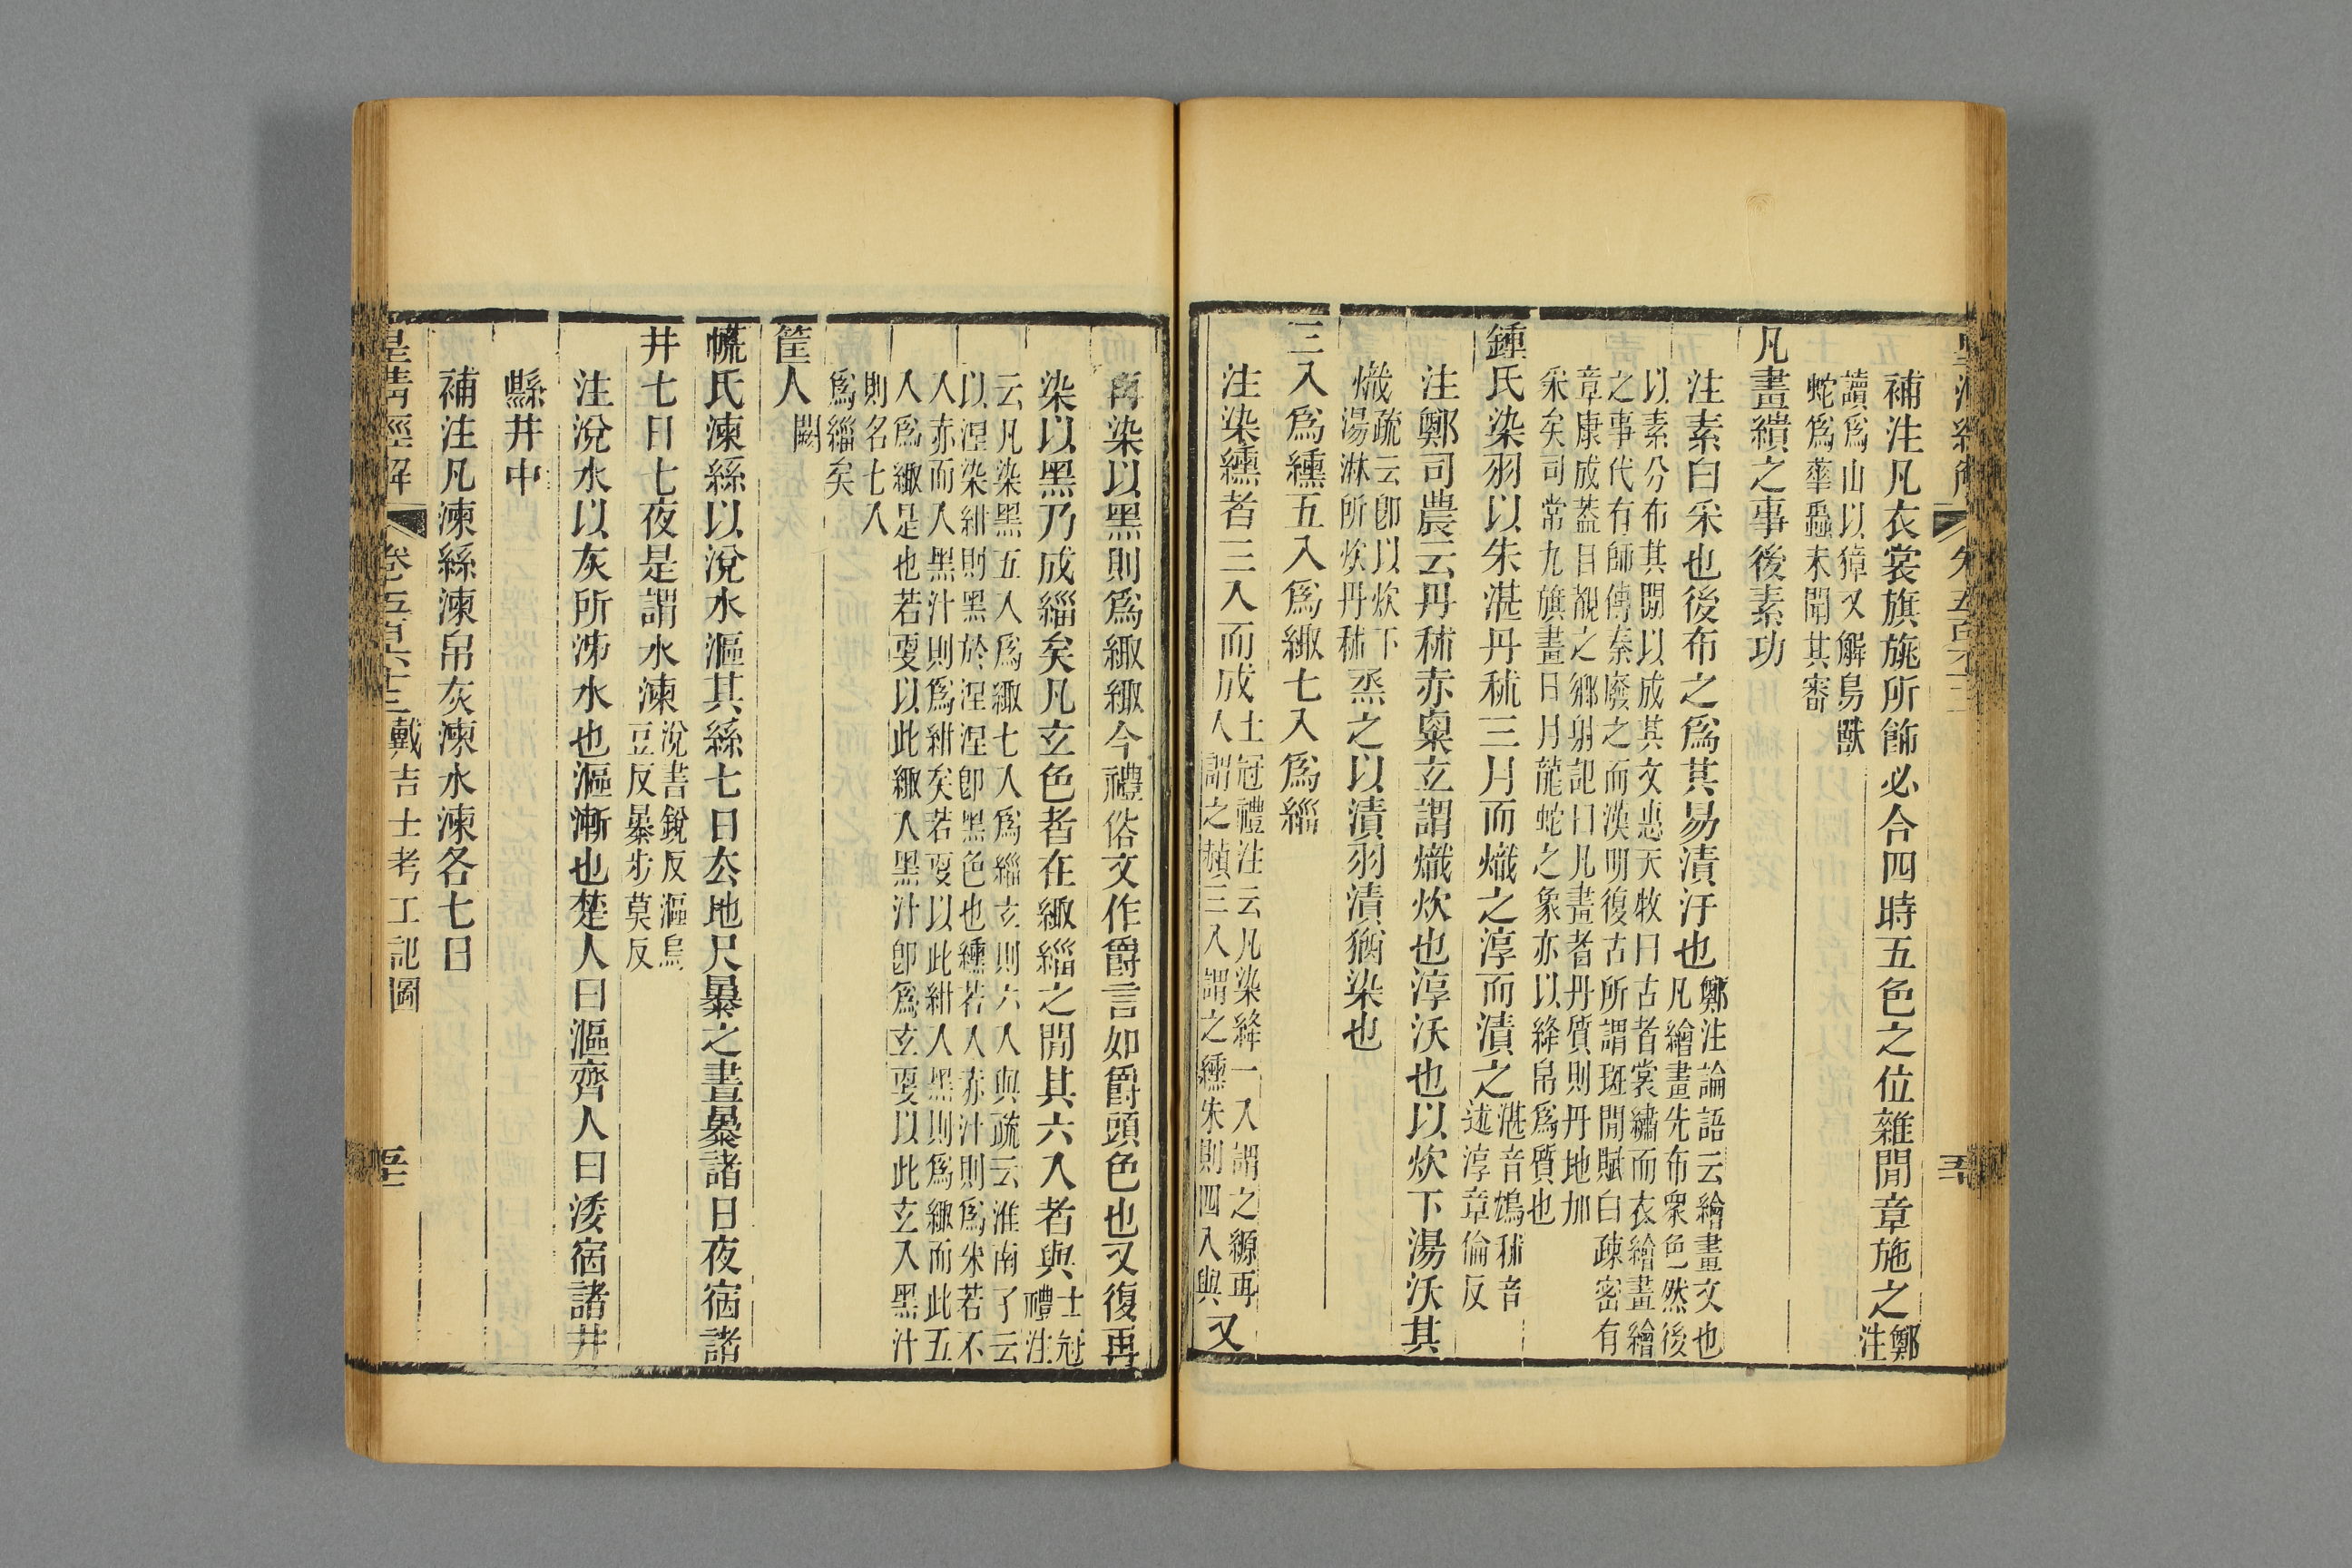 補注凡衣裳旗旐所飾必合四時五色之位雜閒章施之鄭注
讀爲山以獐又解鳥獸
蛇爲華蟲未聞其審
凡畫繢之事後素功
注素白采也後布之爲其易漬汙也鄭注論語云繪畫文也
凡繪畫先布衆色然後
以素分布其閒以成其文惠天牧曰古者裳繡而衣繪畫繪
之事代有師傳秦廢之而漢明復古所謂斑閒賦白疎密有
章康成蓋目覩之鄉射記曰凡畫者丹質則丹地加
采矣司常九旗畫日月龍蛇之象亦以絳帛爲質也
鍾氏染羽以朱湛丹秫三月而熾之淳而漬之湛音鴆秫音
述淳章倫反
注鄭司農云丹秫赤粟玄謂熾炊也淳沃也以炊下湯沃其
熾疏云卽以炊下
湯淋所炊丹秫烝之以漬羽漬猶染也
三入爲纁五入爲緅七入爲緇
注染纁者三入而成士冠禮注云凡染絳一入謂之縓再
入謂之赬三入謂之纁朱則四入與又
再染以黑則爲緅緅今禮俗文作爵言如爵頭色也又復再
染以黑乃成緇矣凡玄色者在緅緇之閒其六入者與士冠
禮注
云凡染黑五入爲緅七入爲緇玄則六入與疏云淮南子云
以涅染紺則黑於涅涅卽黑色也纁若入赤汁則爲朱若不
入赤而入黑汁則爲紺矣若更以此紺入黑則爲緅而此五
入爲緅是也若更以此緅入黑汁卽爲玄更以此玄入黑汁
則名七入
爲緇矣
筐人闕
㡛氏湅絲以涗水漚其絲七日去地尺暴之晝暴諸日夜宿諸
井七日七夜是謂水湅涗書銳反漚烏
豆反暴步莫反
注涗水以灰所沸水也漚漸也楚人曰漚齊人曰涹宿諸井
縣井中
補注凡湅絲湅帛灰湅水湅各七日
皇清經解 卷五百六十三 戴吉士考工記圖